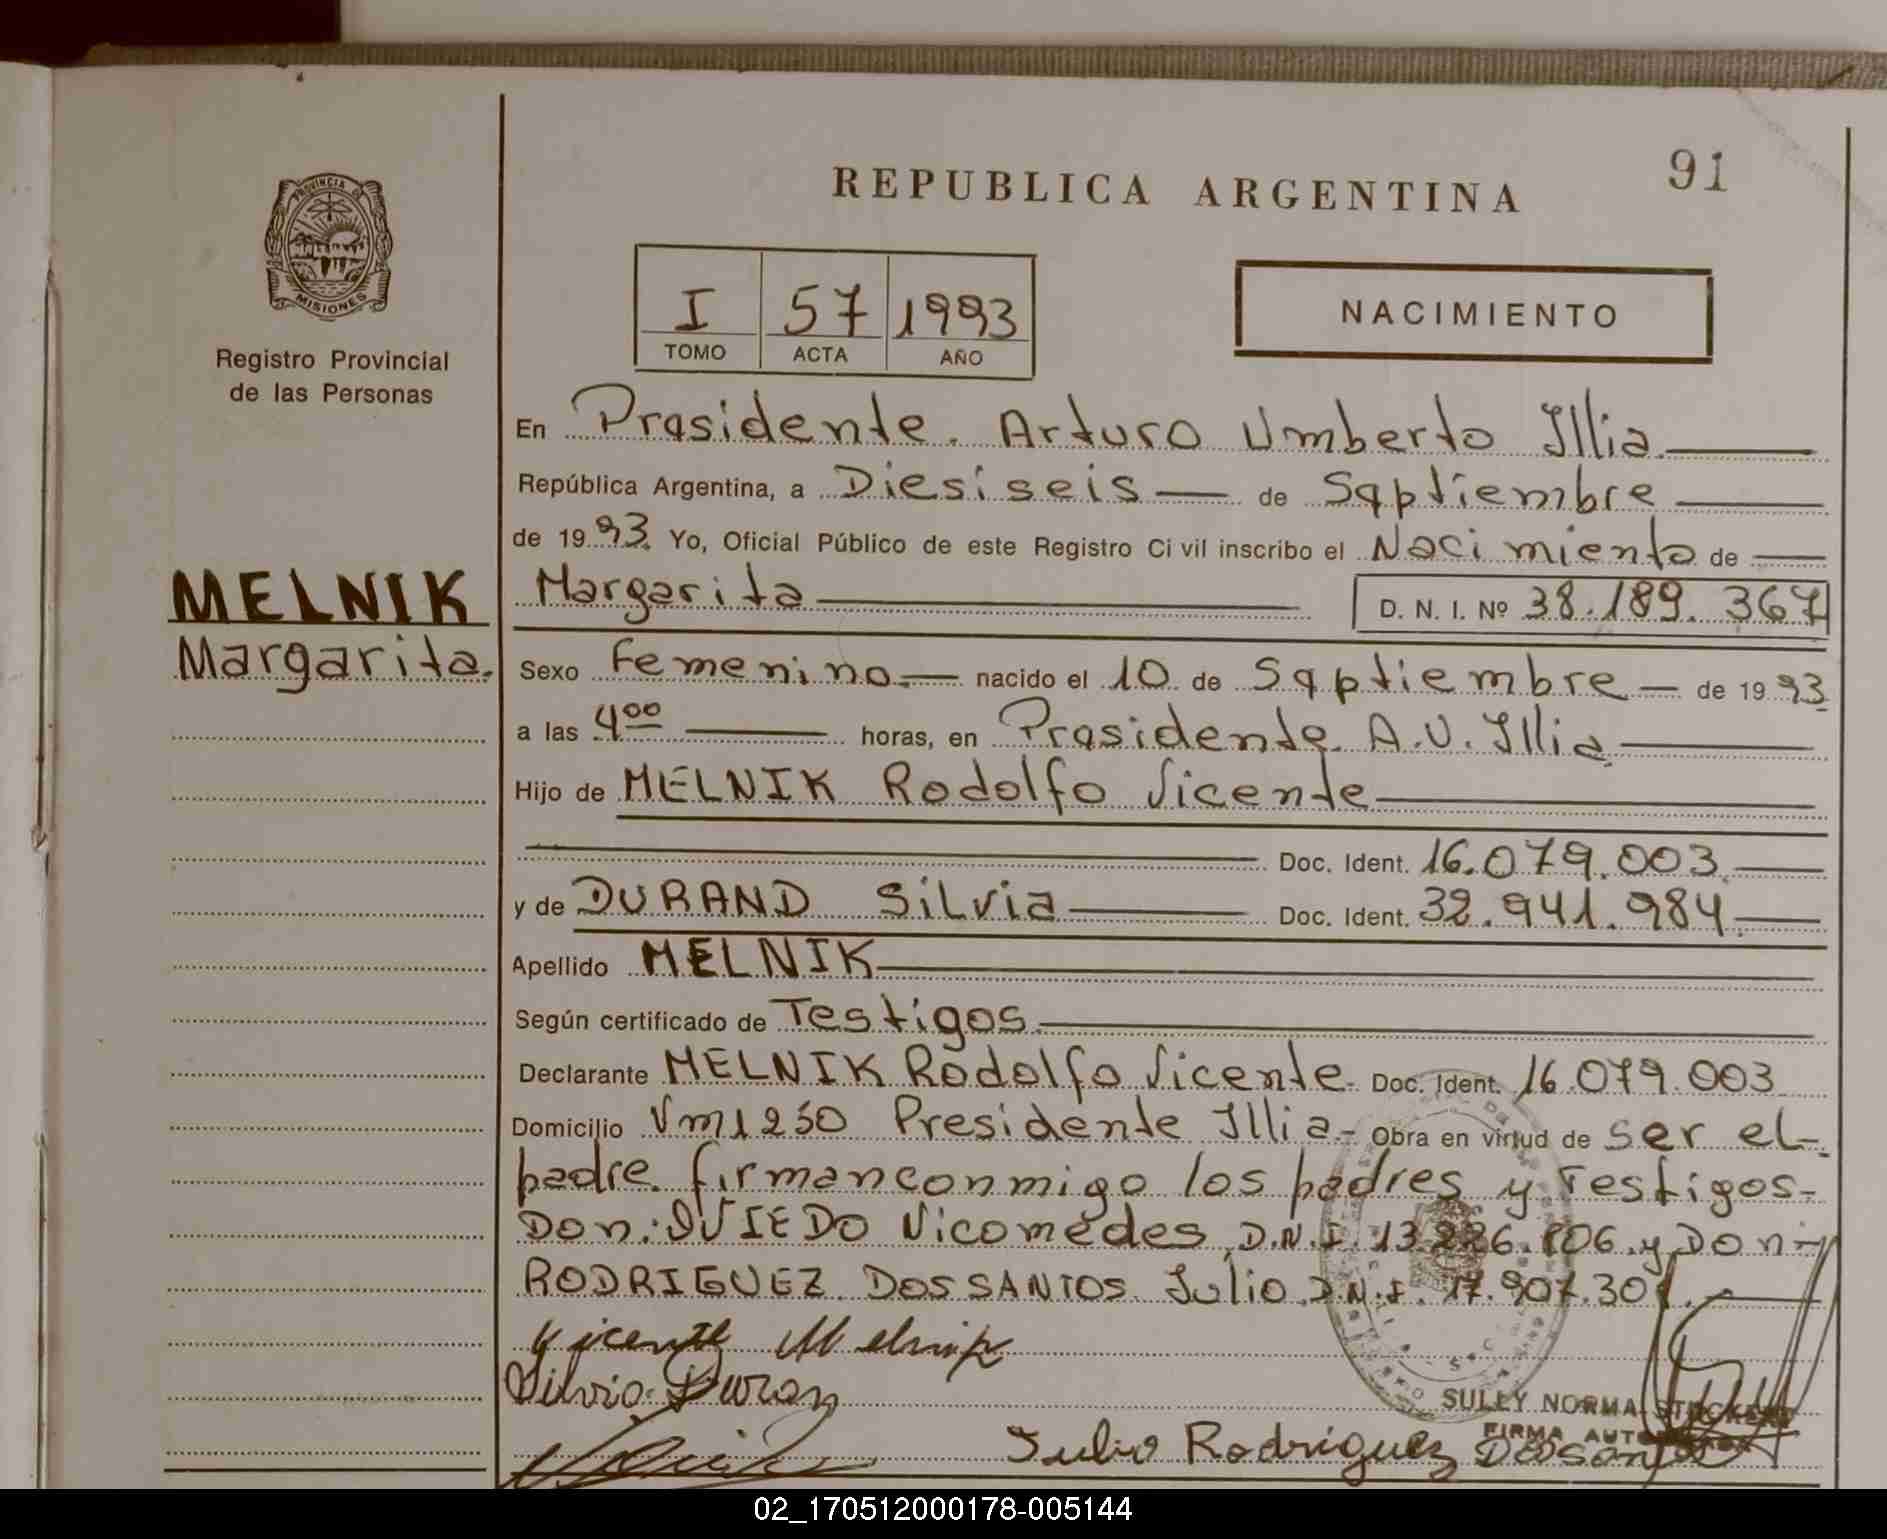 91
REPUBLICA ARGENTINA
PROVINCIA DE
MISIONES
Registro Provincial
de las Personas
I 57 1993
TOMO ACTA AÑO
NACIMIENTO
En Presidente. Arturo Umberto Illia.
República Argentina, a Diesiseis de Septiembre
de 1993. Yo, Oficial Público de este Registro Civil inscribo el Nacimiento de
MELNIK
Margarita.
Margarita D. N. I. Nº 38.189.367
Sexo Femenino.— nacido el 10 de Septiembre — de 1993
a las 4 00 horas, en Presidente A.U. Illia
Hijo de MELNIK Rodolfo Vicente
Doc. Ident. 16.079.003.
y de DURAND Silvia Doc. Ident. 32.941.984.
Apellido MELNIK
Según certificado de Testigos.
Declarante MELNIK Rodolfo Vicente. Doc. Ident. 16.079.003
Domicilio Presidente Illia- Obra en virtud de ser el-
padre. firmanconmigo los padres y Testigos-
Don: OVIEDO Nicomedes, D.N.I. 13. 6. 06. y Don:
RODRIGUEZ DOSSANTOS Julio D.N.I. 17.907.301.
Vicente Melnik
Silvia Duran
SULLY NORMA
FIRMA
Julio Rodriguez
02_170512000178-005144